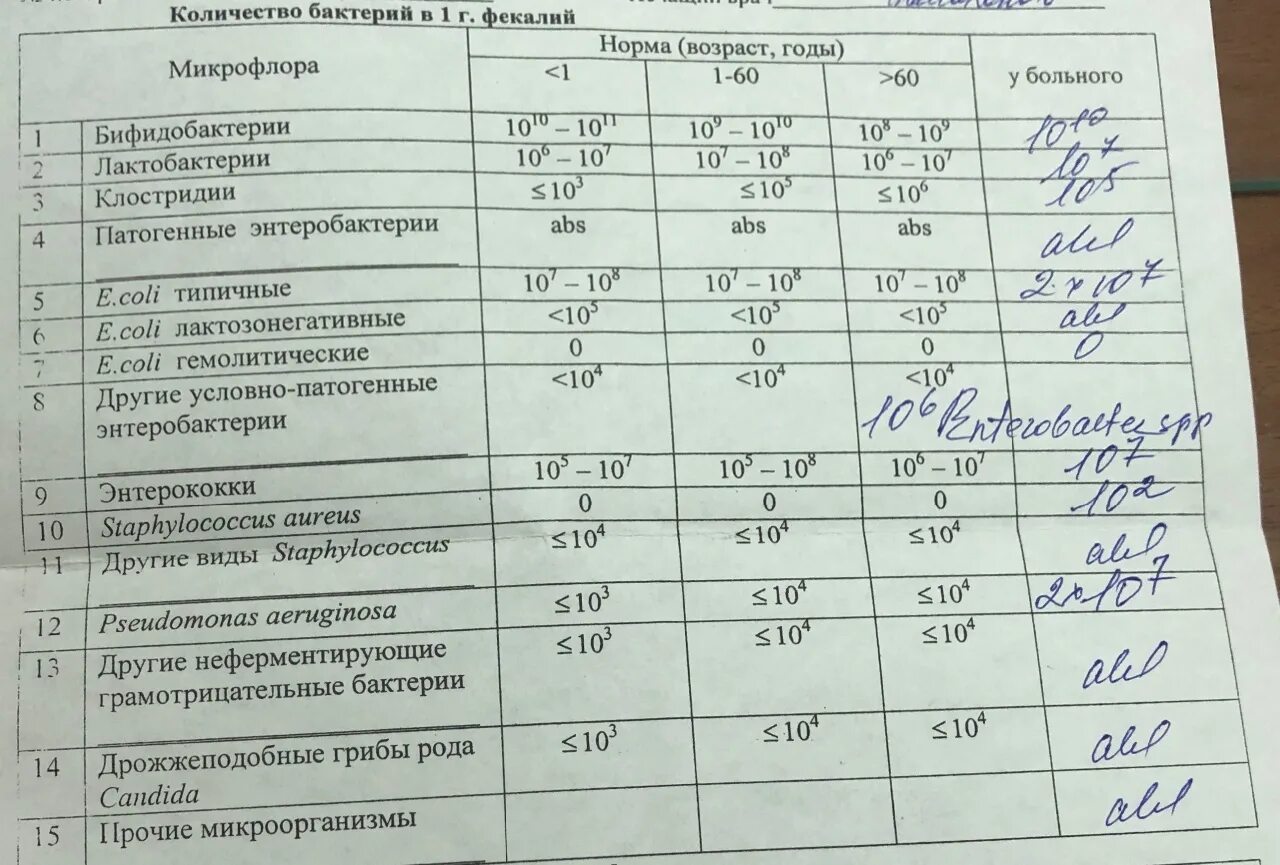 Количество бактерий в 1 г. фекалий
Микрофлора Норма (возраст, годы) у больного
<1 1-60 >60
1 Бифидобактерии 10¹⁰ – 10¹¹ 10⁹ – 10¹⁰ 10⁸ – 10⁹ 10¹⁰
2 Лактобактерии 10⁶ – 10⁷ 10⁷ – 10⁸ 10⁶ – 10⁷ 10⁷
3 Клостридии ≤10³ ≤10⁵ ≤10⁶ 10⁵
4 Патогенные энтеробактерии abs abs abs abs
5 E.coli типичные 10⁷ – 10⁸ 10⁷ – 10⁸ 10⁷ – 10⁸ 2×10⁷
6 E.coli лактозонегативные <10⁵ <10⁵ <10⁵ abs
7 E.coli гемолитические 0 0 0 0
8 Другие условно-патогенные <10⁴ <10⁴ <10⁴
энтеробактерии 10⁶ Enterobacter spp
9 Энтерококки 10⁵ – 10⁷ 10⁵ – 10⁸ 10⁶ – 10⁷ 10⁷
10 Staphylococcus aureus 0 0 0 10²
11 Другие виды Staphylococcus ≤10⁴ ≤10⁴ ≤10⁴ abs
12 Pseudomonas aeruginosa ≤10³ ≤10⁴ ≤10⁴ 2×10⁷
13 Другие неферментирующие ≤10³ ≤10⁴ ≤10⁴ abs
грамотрицательные бактерии
14 Дрожжеподобные грибы рода ≤10³ ≤10⁴ ≤10⁴ abs
Candida
15 Прочие микроорганизмы abs